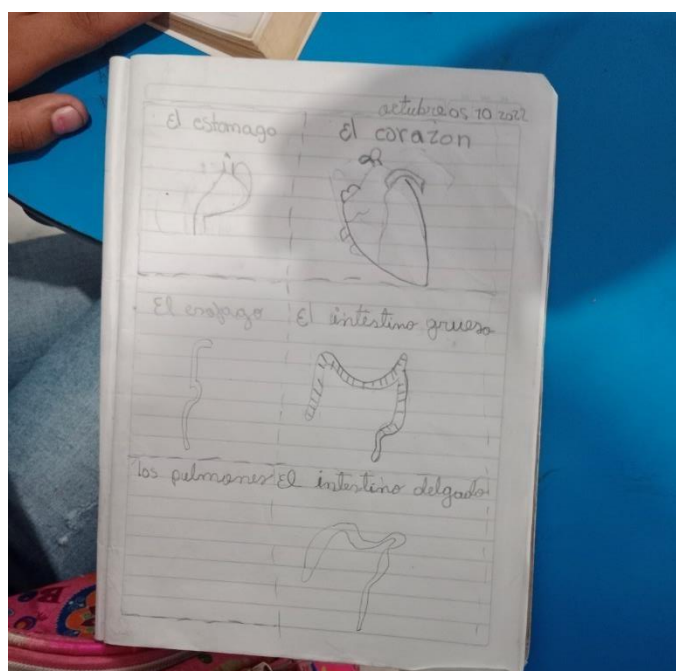 octubre 05 10 2022
El estomago
El corazon
El esofago
El intestino grueso
los pulmones
El intestino delgado